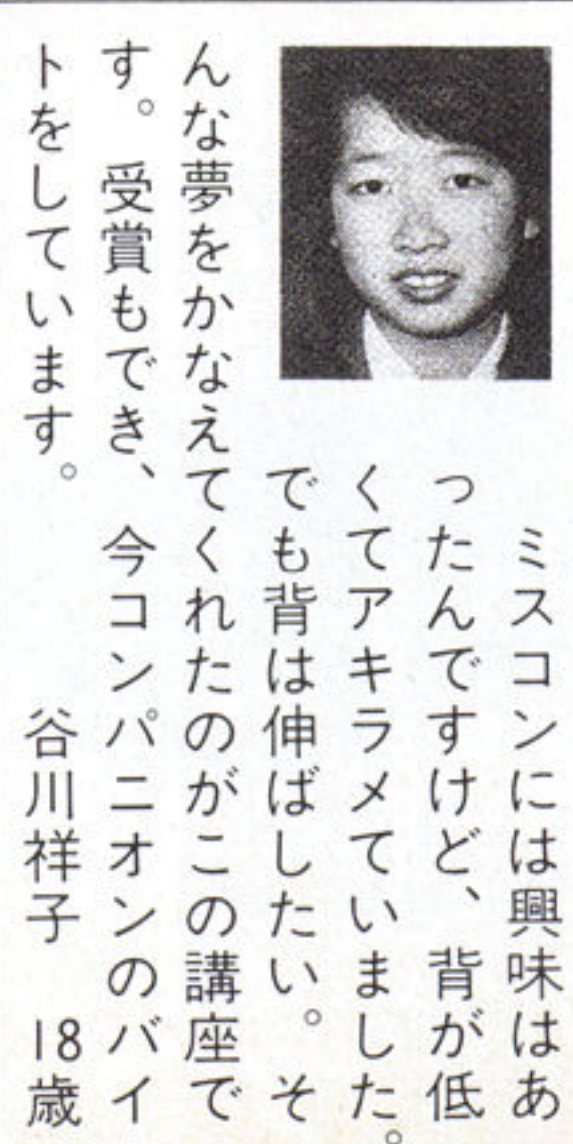 ミスコンには興味はあ
ったんですけど、背が低
くてアキラメていました。
でも背は伸ばしたい。そ
んな夢をかなえてくれたのがこの講座で
す。受賞もでき、今コンパニオンのバイ
トをしています。　谷川祥子　18歳